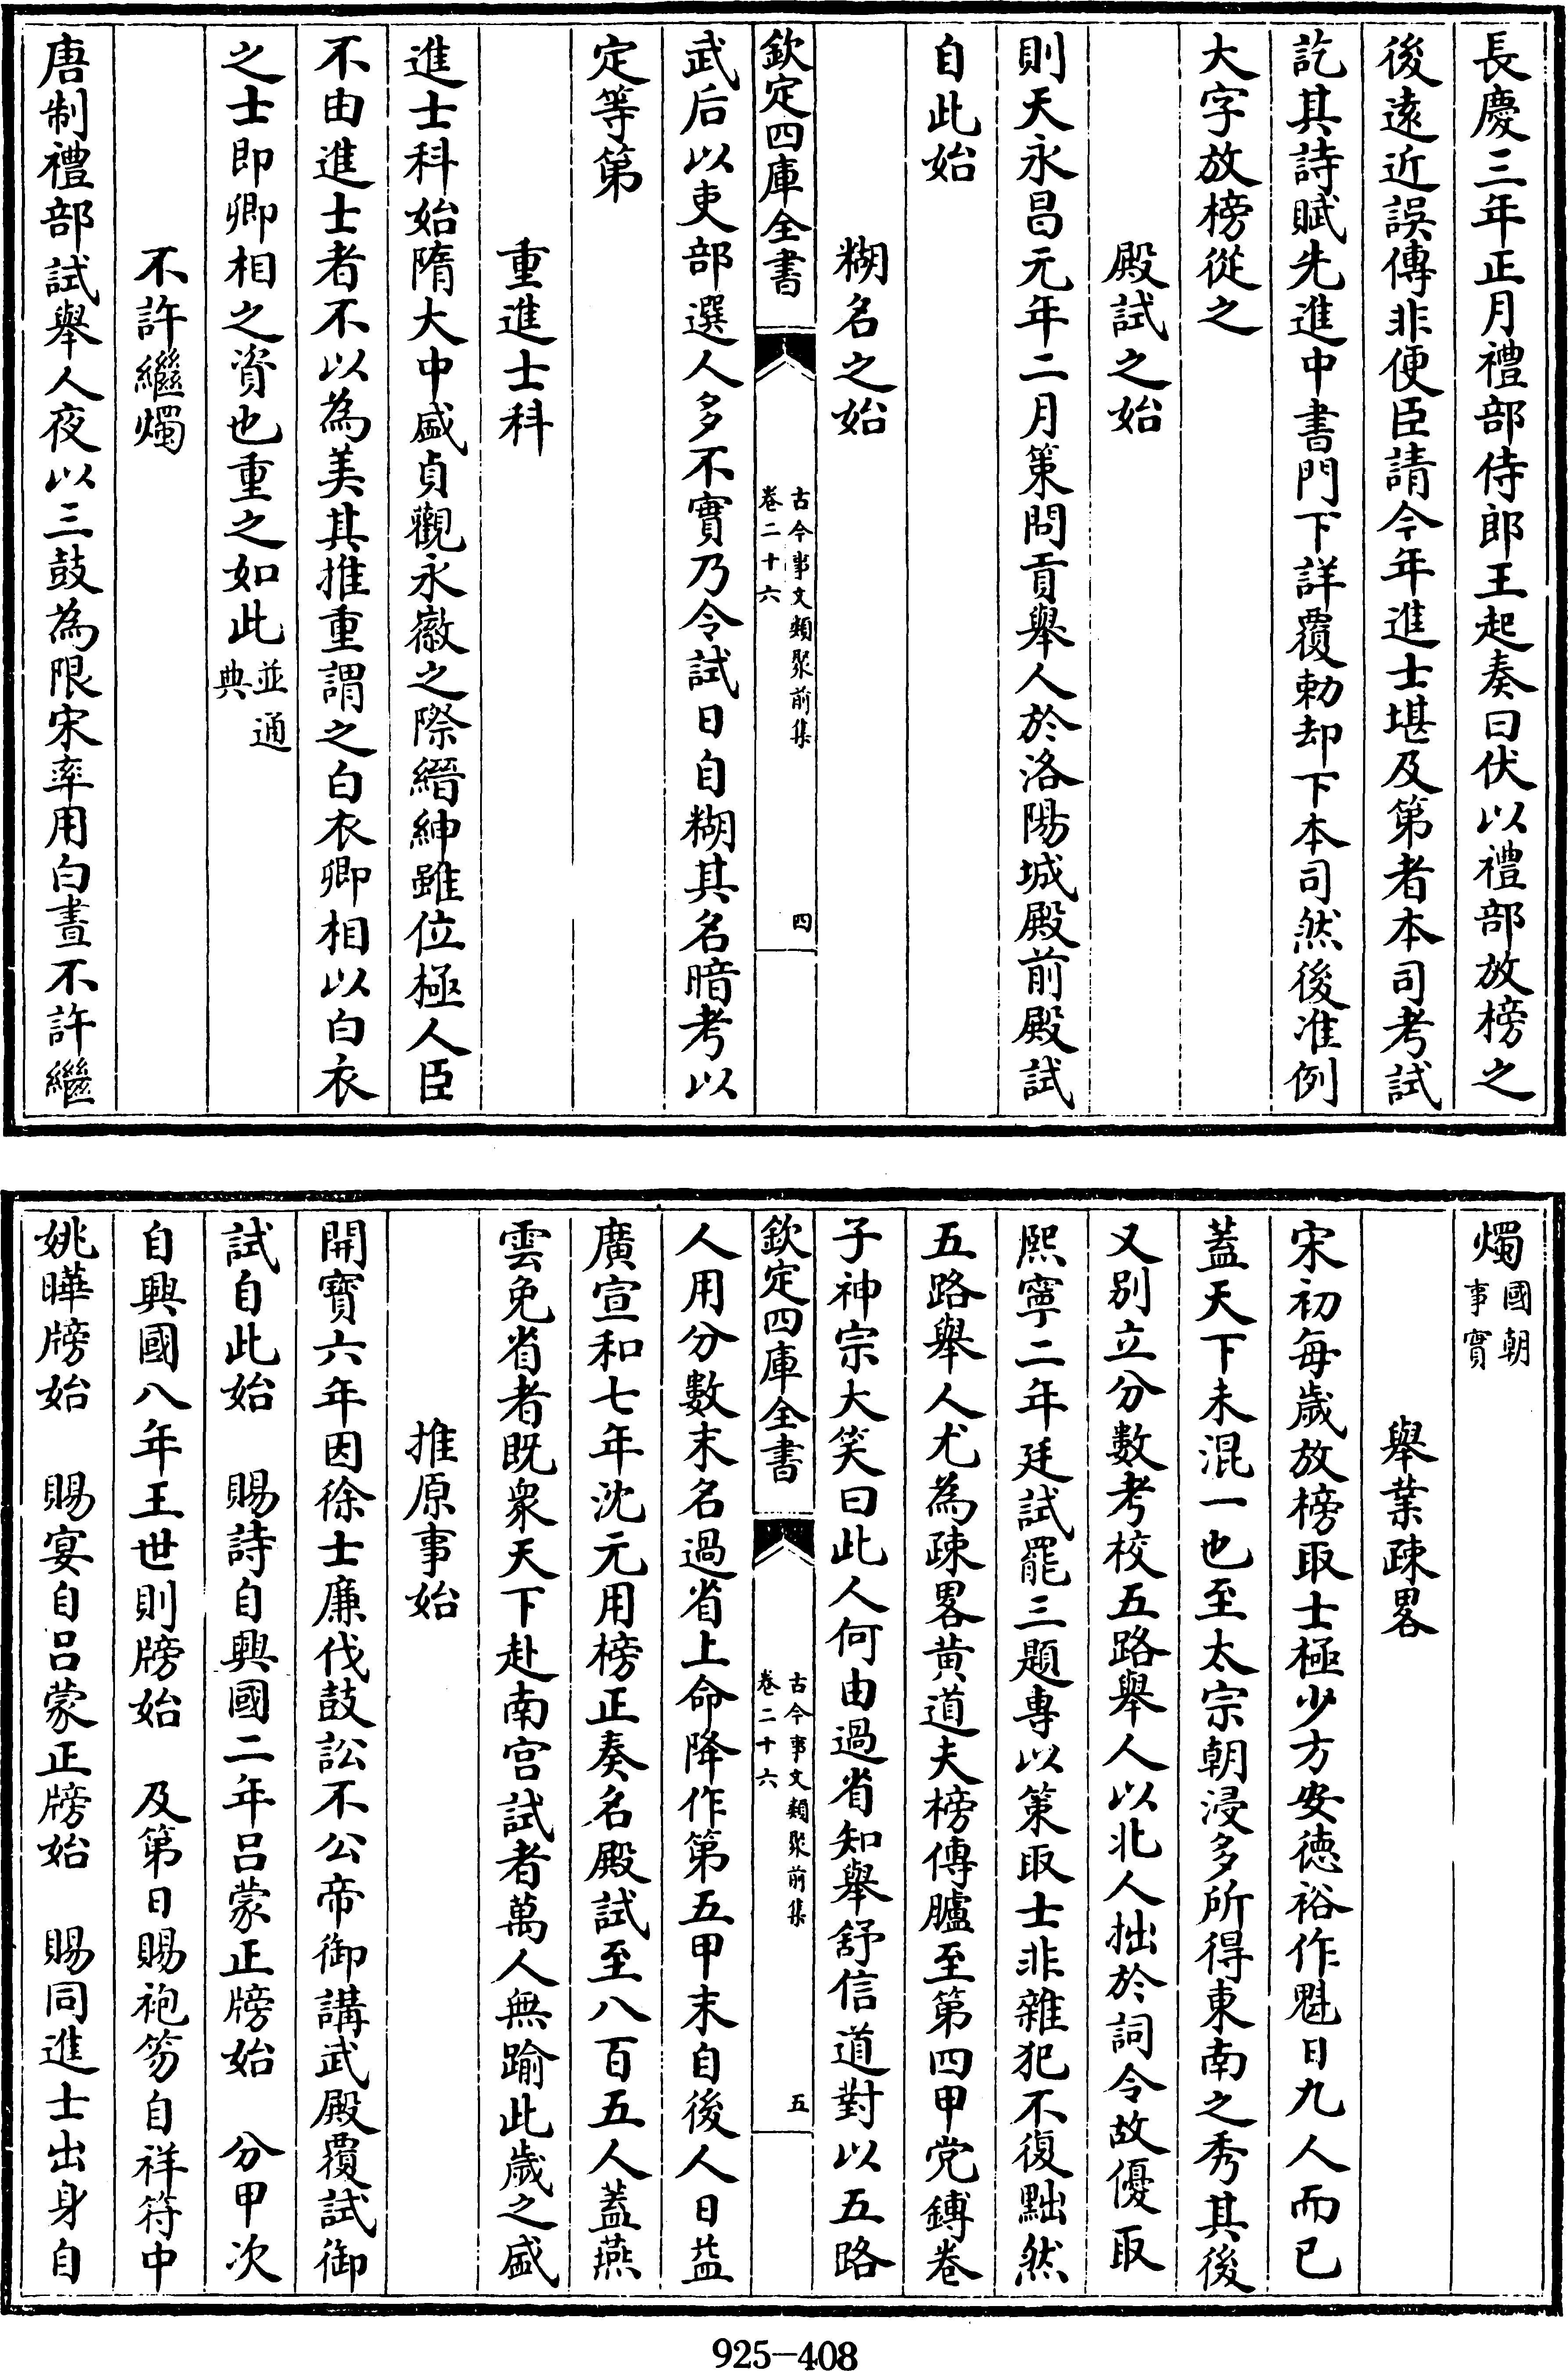 長慶三年正月禮部侍郎王起奏曰伏以禮部放榜之
後遠近誤傳非便臣請今年進士堪及第者本司考試
訖其詩賦先進中書門下詳覆勅却下本司然後准例
大字放榜從之
殿試之始
則天永昌元年二月策問貢舉人於洛陽城殿前殿試
自此始
糊名之始
欽定四庫全書
古今事文類聚前集
卷二十六
四
武后以吏部選人多不實乃令試日自糊其名暗考以
定等第
重進士科
進士科始隋大中盛貞觀永徽之際縉紳雖位極人臣
不由進士者不以為美其推重謂之白衣卿相以白衣
之士即卿相之資也重之如此並通典
不許繼燭
唐制禮部試舉人夜以三鼓為限宋率用白晝不許繼
燭國朝事實
舉業疎畧
宋初每歲放榜取士極少方安德裕作魁日九人而已
蓋天下未混一也至太宗朝浸多所得東南之秀其後
又別立分數考校五路舉人以北人拙於詞令故優取
熙寧二年廷試罷三題專以策取士非雜犯不復黜然
五路舉人尤為疎畧黃道夫榜傳臚至第四甲党鎛卷
子神宗大笑曰此人何由過省知舉舒信道對以五路
欽定四庫全書
古今事文類聚前集
卷二十六
五
人用分數末名過省上命降作第五甲末自後人日益
廣宣和七年沈元用榜正奏名殿試至八百五人蓋燕
雲免省者既衆天下赴南宮試者萬人無踰此歲之盛
推原事始
開寶六年因徐士廉伐鼓訟不公帝御講武殿覆試御
試自此始　賜詩自興國二年呂蒙正牓始　分甲次
自興國八年王世則牓始　及第日賜袍笏自祥符中
姚曄牓始　賜宴自呂蒙正牓始　賜同進士出身自
925-408